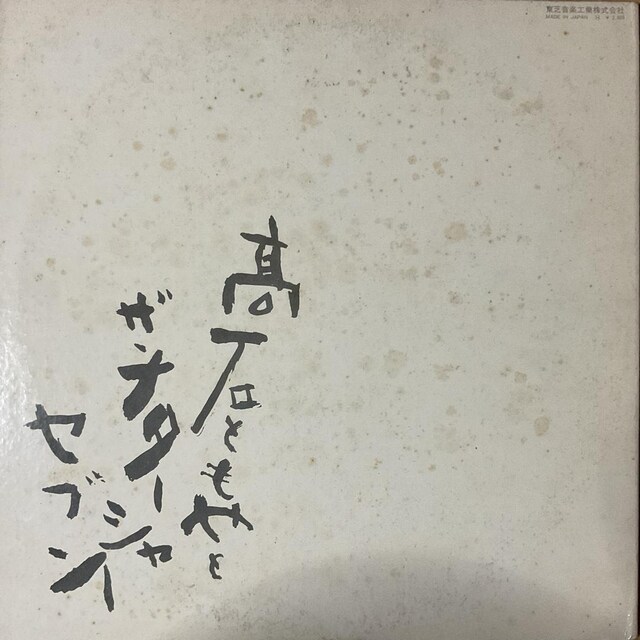 東芝音楽工業株式会社
MADE IN JAPAN
高石ともやと
ザナターシャー
セブン